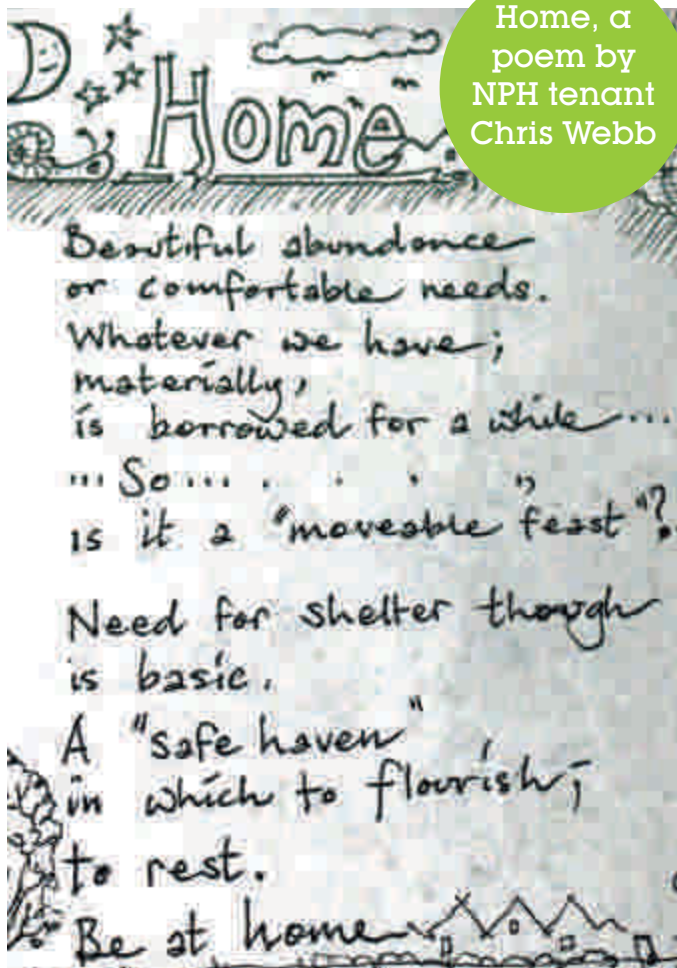 Home, a
poem by
NPH tenant
Chris Webb
Home
Beautiful abundance
or comfortable needs.
Whatever we have;
materially,
is borrowed for a while....
... So... . . . ,,
is it a "moveable feast"?
Need for shelter though
is basic.
A "safe haven"
in which to flourish;
to rest.
Be at home